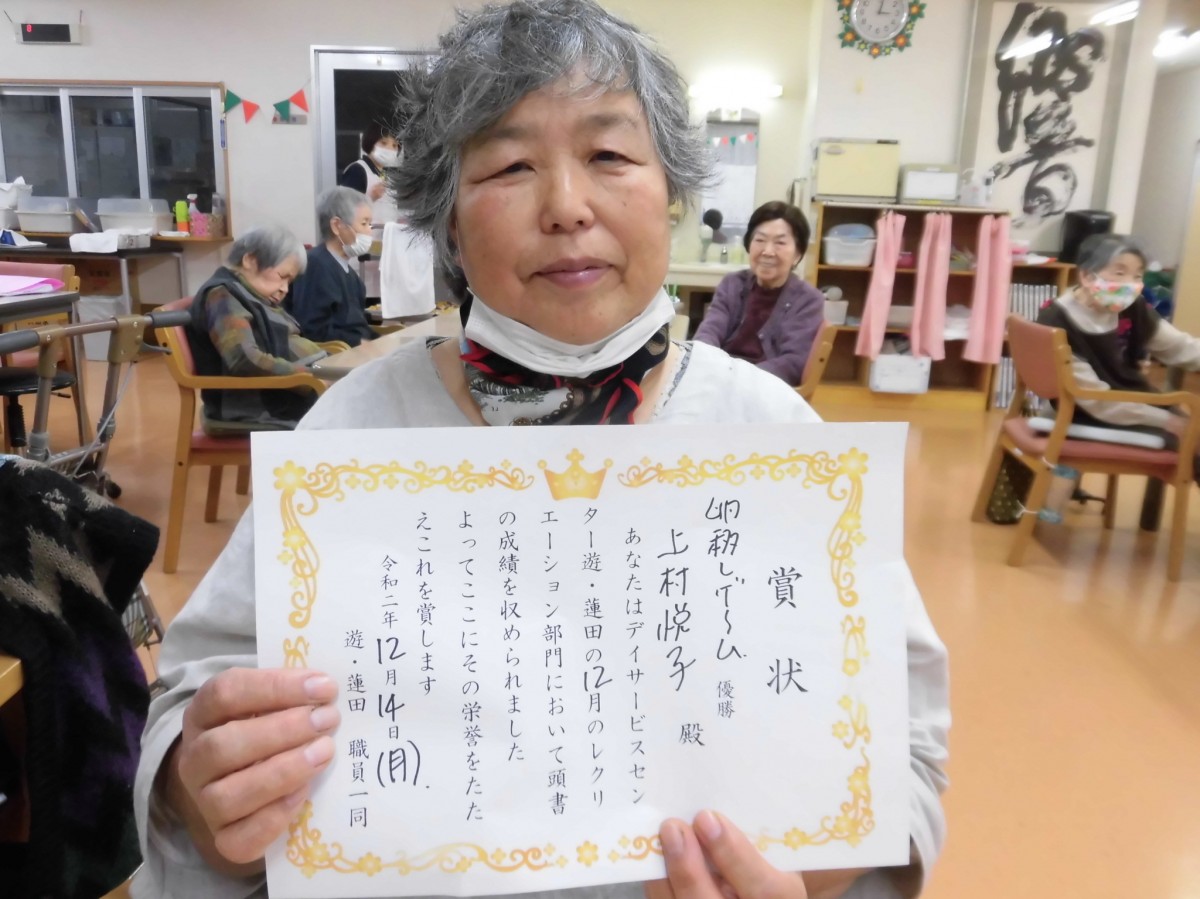 賞状
卵移しゲーム 優勝
上村悦子 殿
あなたはデイサービスセン
ター遊・蓮田の12月のレクリ
エーション部門において頭書
の成績を収められました
よってここにその栄誉をたた
えこれを賞します
令和二年12月14日(月).
遊・蓮田 職員一同